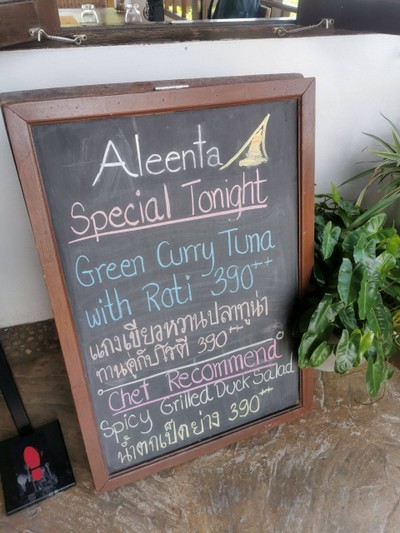 Aleenta
Special Tonight
Green Curry Tuna
with Roti 390++
แกงเขียวหวานปลาทูน่า
ทานคู่กับโรตี 390++
Chef Recommend
Spicy Grilled Duck Salad
น้ำตกเป็ดย่าง 390++